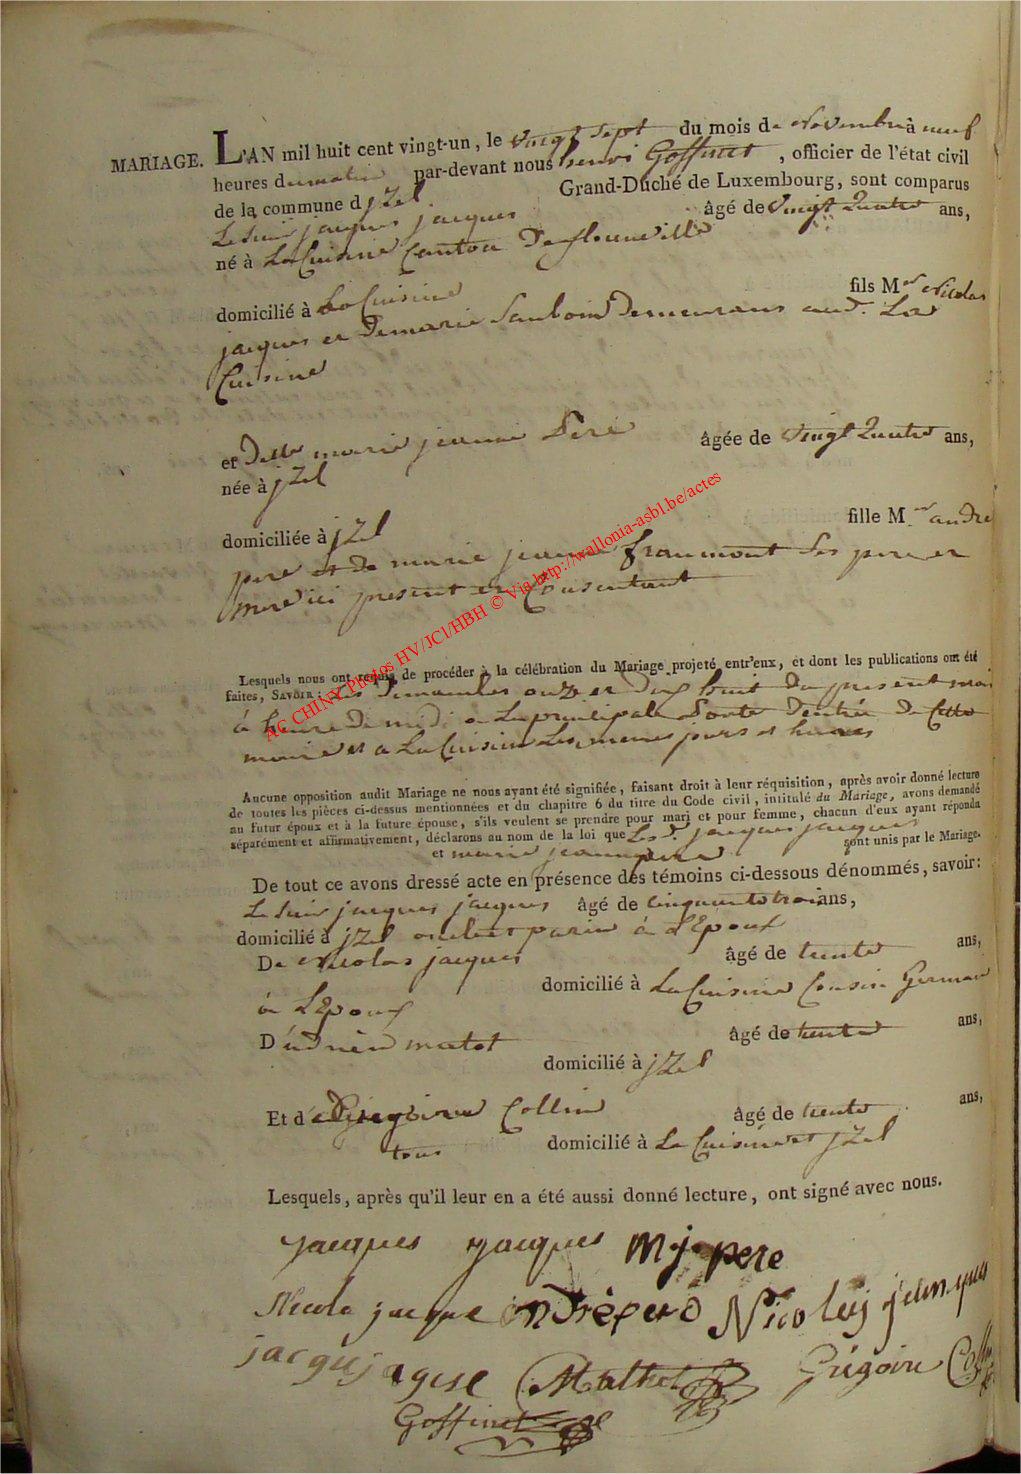 MARIAGE. L'AN mil huit cent vingt-un, le vingt sept du mois de Novembre à neuf
heures du matin par-devant nous henri Goffinet, officier de l'état civil
de la commune d jZel Grand-Duché de Luxembourg, sont comparus
Le Sieur jacques jacques âgé de Vingt Quatre ans,
né à LaCuisine Canton De florenville
domicilié à La Cuisine fils Mr Nicolas
jacques et De marie Demeurans aud. La
Cuisine
et Delle marie jeanne Pere âgée de Vingt Quatre ans,
née à jZel
domiciliée à jZel fille M. andre
pere et de marie jeanne fraumont Ses pere et
mere ici present et Consentant
Lesquels nous ont requis de procéder à la célébration du Mariage projeté entr'eux, et dont les publications ont été
faites, SAVOIR: Les Dimanches onze et Dix huit Du present mois
à heure De midi a La principale Porte D'entrée De Cette
mairie et a La Cuisine Les memes jours et heures
Aucune opposition audit Mariage ne nous ayant été signifiée, faisant droit à leur réquisition, après avoir donné lecture
de toutes les pièces ci-dessus mentionnées et du chapitre 6 du titre du Code civil, intitulé du Mariage, avons demandé
au futur époux et à la future épouse, s'ils veulent se prendre pour mari et pour femme, chacun d'eux ayant répondu
séparément et affirmativement, déclarons au nom de la loi que Led. jacques jacques
et marie jeanne pere sont unis par le Mariage.
De tout ce avons dressé acte en présence des témoins ci-dessous dénommés, savoir:
Le Sieur jacques jacques âgé de cinquante trois ans,
domicilié à jZel oncle et parin à L'Epoux
De Nicolas jacques âgé de trente ans,
domicilié à La Cuisine Cousin Germain
à L'Epoux
D' matot âgé de trente ans,
domicilié à jZel
Et de Gregoire Collin âgé de trente ans,
tous domicilié à La Cuisine et jZel
Lesquels, après qu'il leur en a été aussi donné lecture, ont signé avec nous.
jacques jacques m j pere
Nicola jacque andrè pere Nicolas
Mathot Grégoire
Goffinet
AC CHINY Photos HV/JCl/HBH © Via http://wallonia-asbl.be/actes